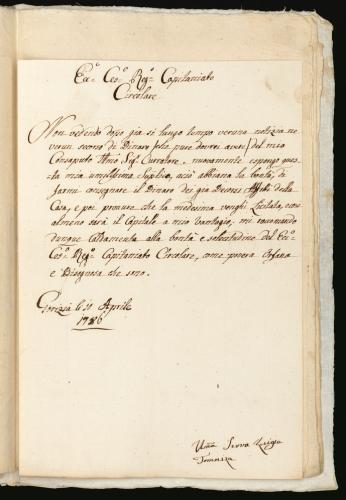 Ecc:º Ces:º Reg:º Capitaniato
Circolare
Non vedendo dopo già sì lungo tempo veruna notizia ne
verun socorso di Dinaro /: che pure dovrei avere :/ del mio
Consaputo Sig: Curatore, nuovamente espongo ques-
ta mia umilissima Suplica, aciò abbiano la bontà di
farmi consegnare il Dinaro dei già decorsi Affitti della
Casa, e poi premure che la medesima venghi Licitata, con
almeno sarà il Capitale a mio vantagio; mi racomando
dunque caldamente alla bontà e solecitudine del Ecc:º
Ces:º Reg:º Capitaniato Circolare, come povera Orfana
e Bisognosa che sono.
Gorizia li 10 Aprile
1786
Uma Serva Luigia